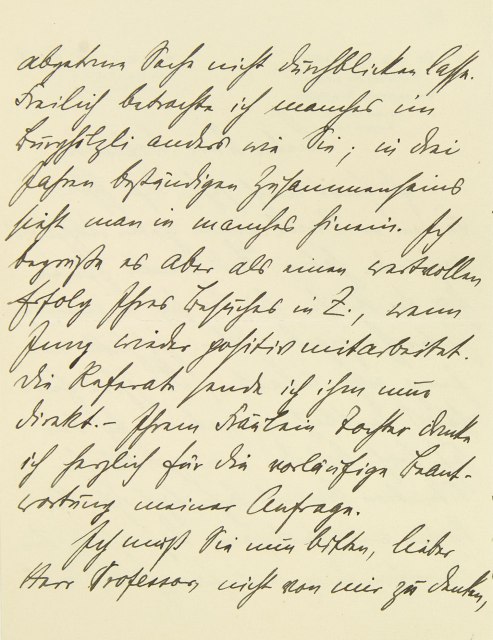 abgetane Sache nicht durchblicken lasse.
Freilich betrachte ich manches im
Burghölzli anders wie Sie; in drei
Jahren beständigen Zusammenseins
sieht man in manches hinein. Ich
begrüße es aber als einen wertvollen
Erfolg Ihres Besuches in Z., wenn
Jung wieder positiv mitarbeitet.
Die Referate sende ich ihm nun
direkt. – Ihrem Fräulein Tochter danke
ich herzlich für die vorläufige Beant-
wortung meiner Anfrage.
Ich muß Sie nun bitten, lieber
Herr Professor, nicht von mir zu denken,